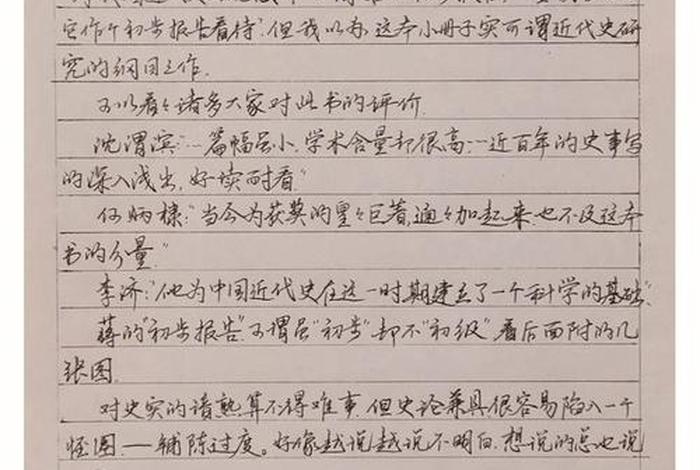 它作个初步报告看待，但我以为，这本小册子实可谓近代史研
究的纲目之作．
可以看看诸多大家对此书的评价．
沈渭滨："…篇幅虽小，学术含量却很高…近百年的史事写
的深入浅出，好读耐看"
何炳棣："当今为获奖的累累巨著，通通加起来，也不及这本
书的分量。"
李济："他为中国近代史在这一时期建立了一个科学的基础"．
蒋的"初步报告"，可谓虽"初步"却不"初级"，看后面附的几
张图．
对史实的谙熟算不得难事，但史论兼具很容易陷入一个
怪圈，——铺陈过度。好像越说越说不明白，想说的总也说